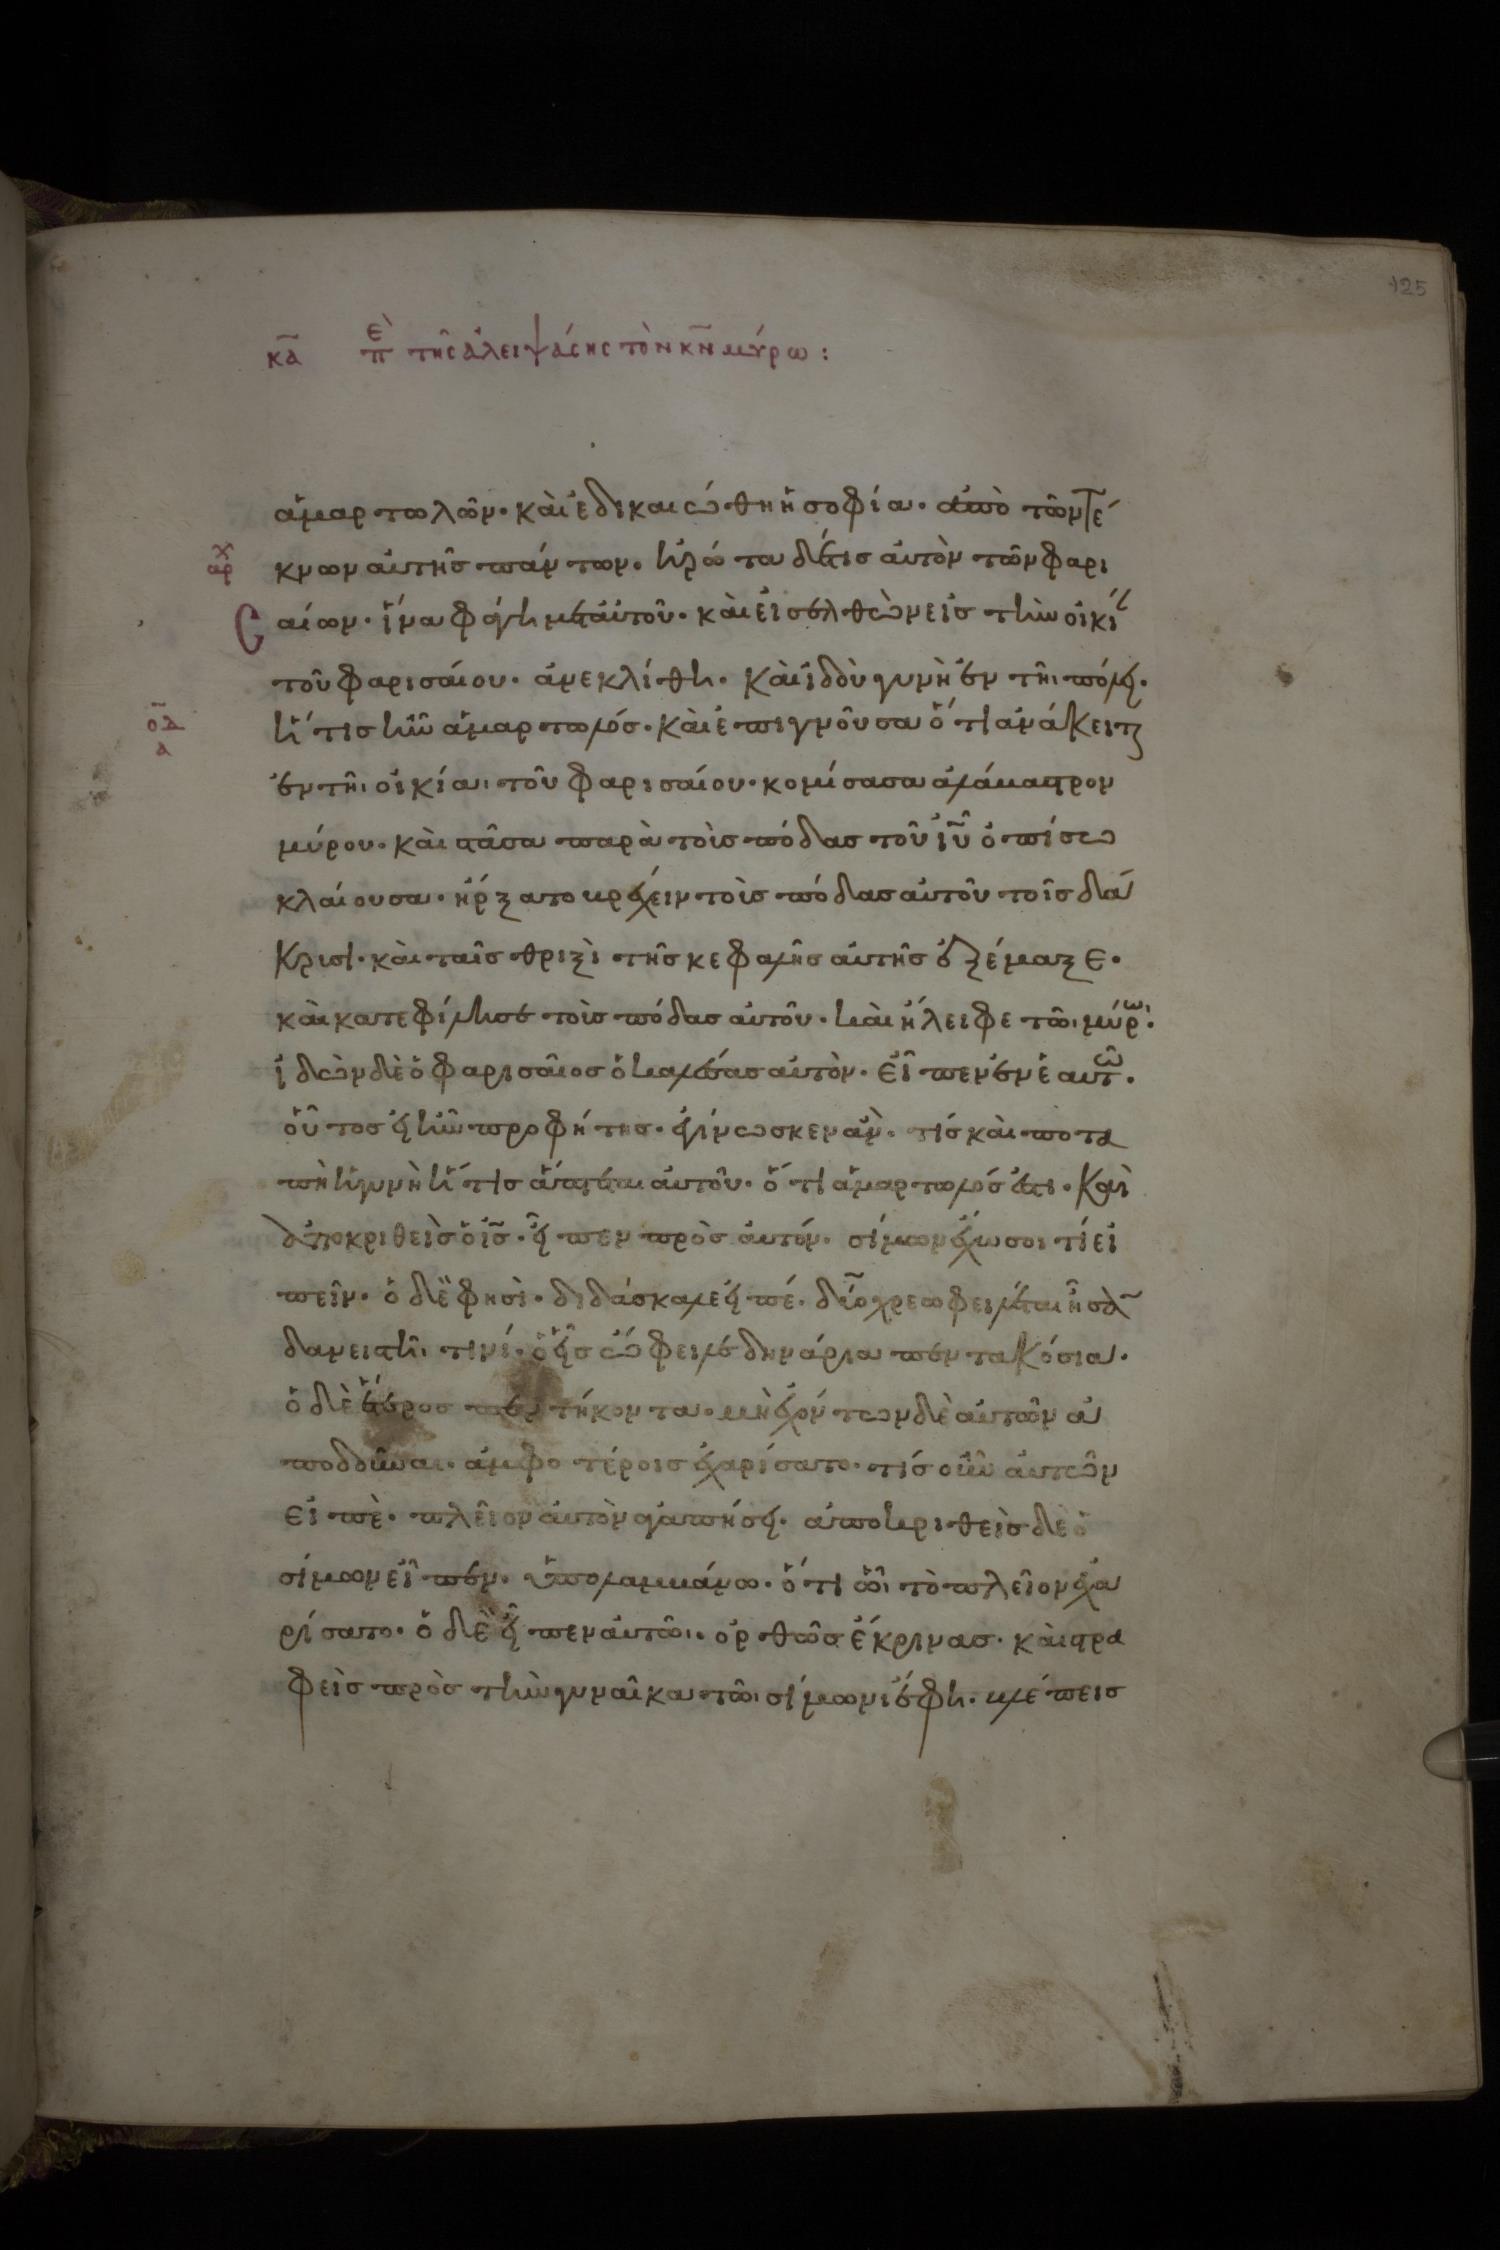 125
κ̅α̅ ἐπ τῆς ἀλειψάσης τὸν κ̅ν̅ μύρω :
ἁμαρτωλῶν· καὶ ἐδικαιώθη ἡ σοφία· ἀπὸ τῶν τέ
αρχ
κνων αὐτῆς πάντων· ἠρώτα δέ τις αὐτὸν τῶν φαρι
σαίων· ἵνα φάγη μετ αὐτοῦ· καὶ εἰσελθὼν εἰς τὴν οἰκί
τοῦ φαρισαίου· ἀνεκλίθη· καὶ ἰδοὺ γυνὴ ἐν τῆι πόλει·
ο̅δ̅
α
ἥτις ἦν ἁμαρτωλός· καὶ ἐπιγνοῦσα ὅτι ἀνάκειται
ἐν τῆι οἰκίαι τοῦ φαρισαίου· κομίσασα ἀλάβαστρον
μύρου· καὶ στᾶσα παρὰ τοὺς πόδας τοῦ ἰ̅υ̅ ὀπίσω
κλαίουσα· ἤρξατο βρέχειν τοὺς πόδας αὐτοῦ τοῖς δά
κρυσι· καὶ ταῖς θριξὶ τῆς κεφαλῆς αὐτῆς ἐξέμαξε·
καὶ κατεφίλησε τοὺς πόδας αὐτοῦ· καὶ ἤλειφε τῶι μύρωι·
ἰδὼν δὲ ὁ φαρισαῖος ὁ καλέσας αὐτὸν· εἶπεν ἐν ἑαυτῶ·
οὗτος εἰ ἦν προφήτης· ἐγίνωσκεν ἂν· τίς καὶ ποτα
πὴ ἡ γυνὴ ἥτις ἅπτεται αὐτοῦ· ὅτι ἁμαρτωλός ἐστι· καὶ
ἀποκριθεὶς ὁ ἰ̅ς̅· εἶπεν πρὸς αὐτόν· σίμων ἔχω σοι τί εἰ
πεῖν· ὁ δὲ φησὶ· διδάσκαλε εἰπέ· δύο χρεωφειλέται ἦσαν
δανειστῆ τινί· ὁ εἷς ὤφειλε δηνάρια πεντακόσια·
ὁ δὲ ἕτερος πεντήκοντα· μὴ ἐχόντων δὲ αὐτῶν ἀ
ποδοῦναι· ἀμφοτέροις ἐχαρίσατο· τίς οὖν αὐτῶν
εἰπὲ· πλεῖον αὐτὸν ἀγαπήσει· ἀποκριθεὶς δὲ ὁ
σίμων εἶπεν· ὑπολαμβάνω· ὅτι ὧι τὸ πλεῖον ἐχα
ρίσατο· ὁ δὲ εἶπεν αὐτῶι· ὀρθῶς ἔκρινας· καὶ στρα
φεὶς πρὸς τὴν γυναῖκα τῶι σίμωνι ἔφη· βλέπεις